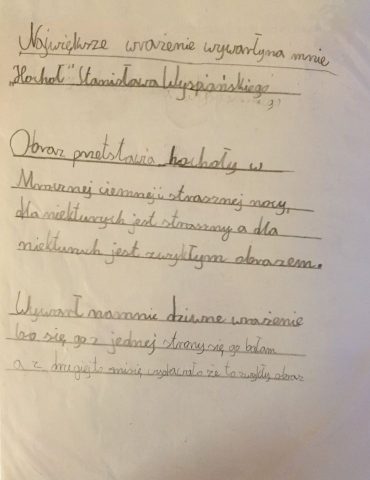 Największe wrażenie wywarłyna mnie
„Hochoł" Stanisława Wyspiańskiego
Obraz przetstawia hochoły w
Mrocznej ciemnej i strasznej nocy,
dla niekturych jest straszny a dla
niekturych jest zwykłym obrazem.
Wywarł namnie dziwne wrażenie
bo się go z jednej strony się go bałam
a z drugiej to misię wydawało że to zwykły obraz